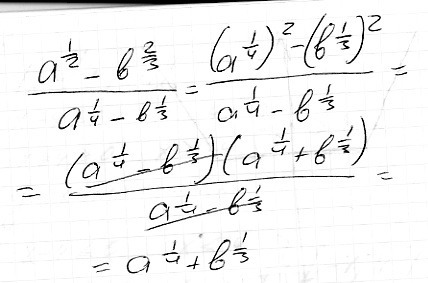 (a^(1/2) - в^(2/3)) / (a^(1/4) - в^(1/3)) = ((a^(1/4))^2 - (в^(1/3))^2) / (a^(1/4) - в^(1/3)) =
= ((a^(1/4) - в^(1/3)) (a^(1/4) + в^(1/3))) / (a^(1/4) - в^(1/3)) =
= a^(1/4) + в^(1/3)